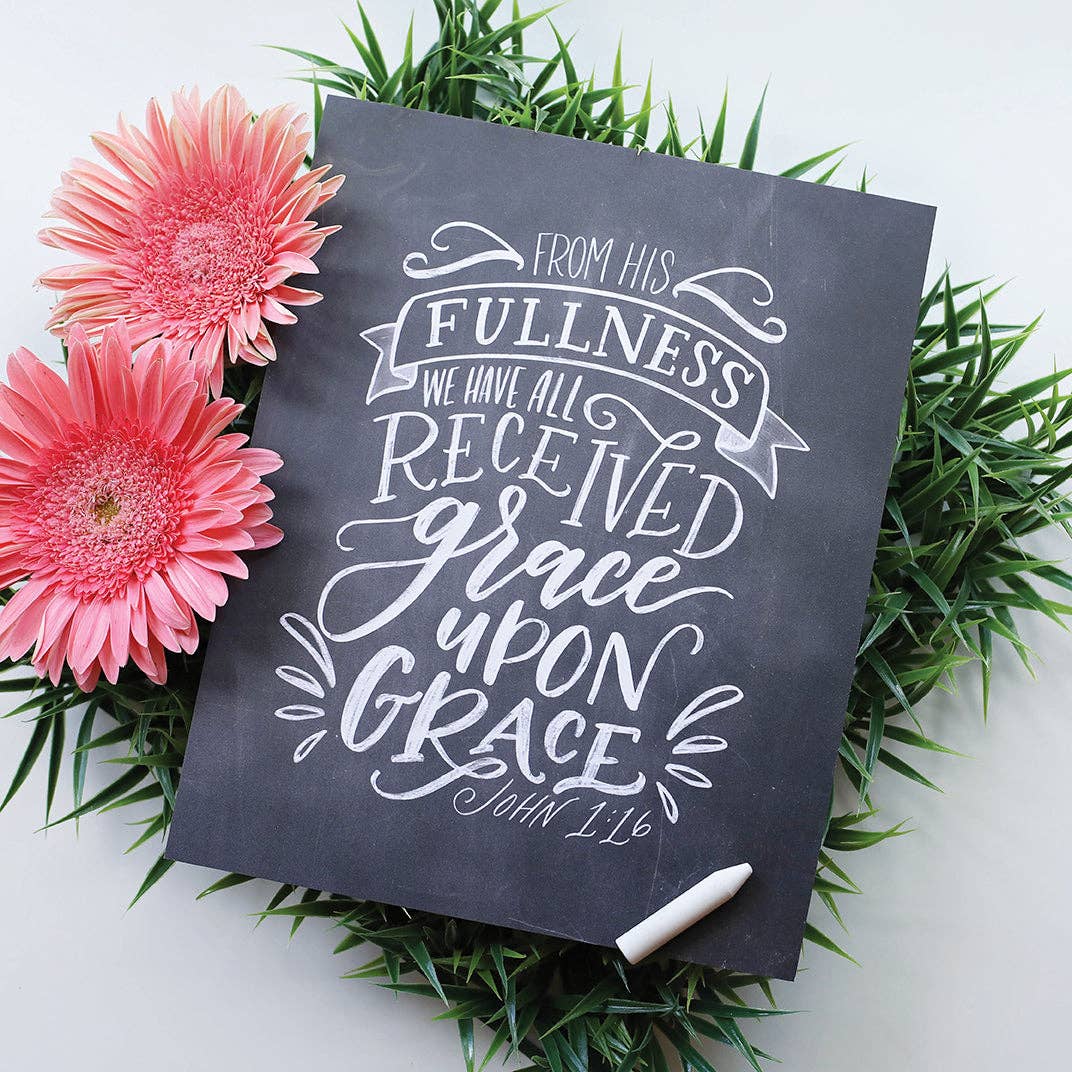 FROM HIS
FULLNESS
WE HAVE ALL
RECEIVED
grace
UPON
GRACE
JOHN 1:16